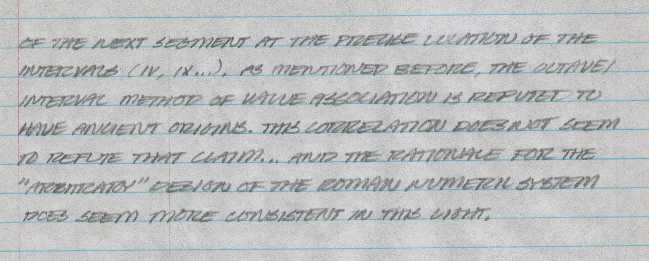 OF THE NEXT SEGMENT AT THE PRECISE LOCATION OF THE
INTERVALS (IV, IX...). AS MENTIONED BEFORE, THE OCTAVE/
INTERVAL METHOD OF VALUE ASSOCIATION IS REPUTED TO
HAVE ANCIENT ORIGINS. THIS CORRELATION DOES NOT SEEM
TO REFUTE THAT CLAIM... AND THE RATIONALE FOR THE
"ARBITRARY" DESIGN OF THE ROMAN NUMERIC SYSTEM
DOES SEEM MORE CONSISTENT IN THIS LIGHT.